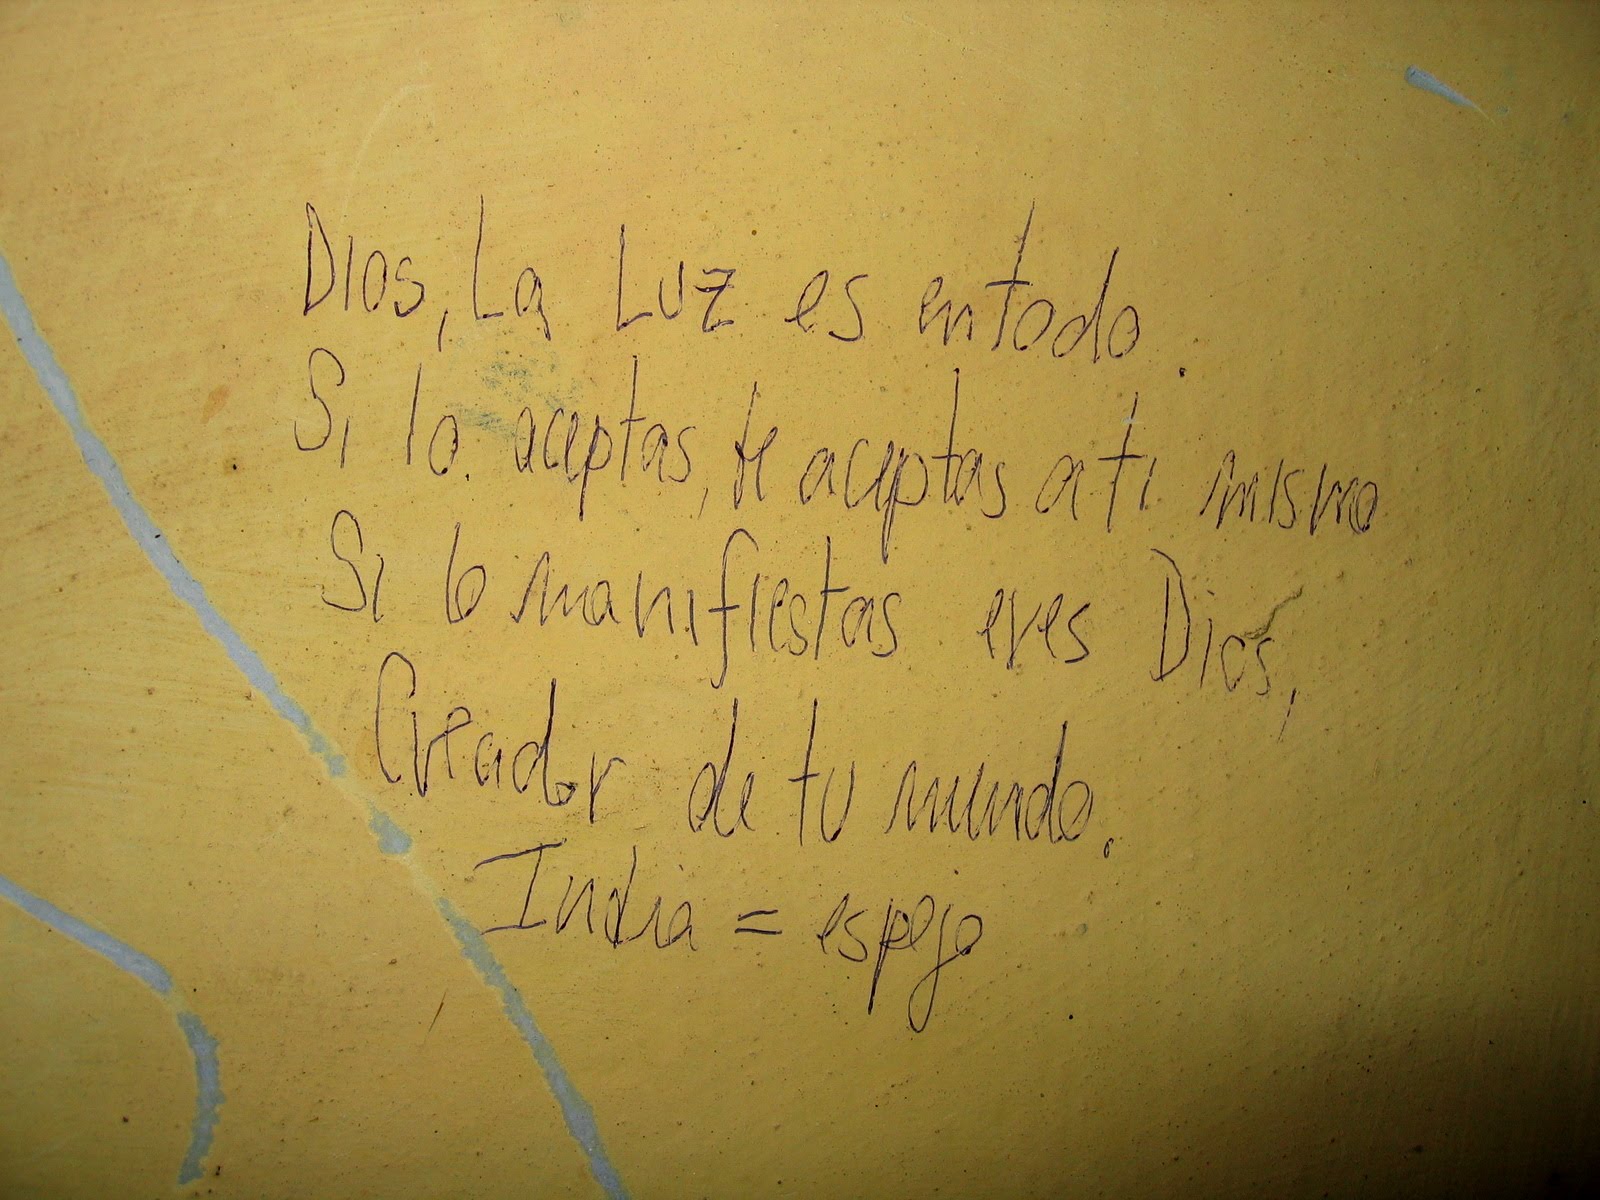 Dios, La Luz es en todo.
Si lo aceptas, te aceptas a ti mismo
Si lo manifiestas eres Dios,
Creador de tu mundo.
India = espejo